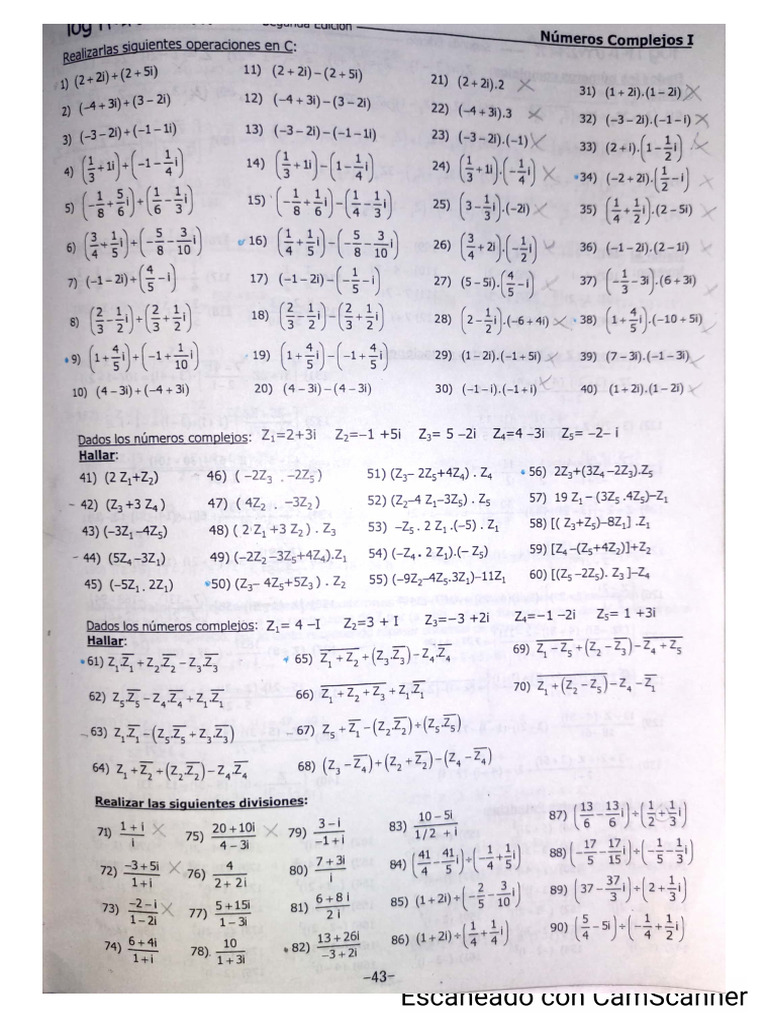 Segunda Edición
Números Complejos I
Realizarlas siguientes operaciones en C:
1) (2+2i)+(2+5i)
2) (-4+3i)+(3-2i)
3) (-3-2i)+(-1-1i)
4) (1/3+1i)+(-1-1/4i)
5) (-1/8+5/6i)+(1/6-1/3i)
6) (3/4+1/5i)+(-5/8-3/10i)
7) (-1-2i)+(4/5-i)
8) (2/3-1/2i)+(2/3+1/2i)
9) (1+4/5i)+(-1+1/10i)
10) (4-3i)+(-4+3i)
11) (2+2i)-(2+5i)
12) (-4+3i)-(3-2i)
13) (-3-2i)-(-1-1i)
14) (1/3+1i)-(1-1/4i)
15) (-1/8+1/6i)-(1/4-1/3i)
16) (1/4+1/5i)-(-5/8-3/10i)
17) (-1-2i)-(-1/5-i)
18) (2/3-1/2i)-(2/3+1/2i)
19) (1+4/5i)-(-1+4/5i)
20) (4-3i)-(4-3i)
21) (2+2i).2
22) (-4+3i).3
23) (-3-2i).(-1)
24) (1/3+1i).(-1/4i)
25) (3-1/3i).(-2i)
26) (3/4+2i).(-1/2i)
27) (5-5i).(4/5-i)
28) (2-1/2i).(-6+4i)
29) (1-2i).(-1+5i)
30) (-1-i).(-1+i)
31) (1+2i).(1-2i)
32) (-3-2i).(-1-i)
33) (2+i).(1-1/2i)
34) (-2+2i).(1/2-i)
35) (1/4+1/2i).(2-5i)
36) (-1-2i).(2-1i)
37) (-1/3-3i).(6+3i)
38) (1+4/5i).(-10+5i)
39) (7-3i).(-1-3i)
40) (1+2i).(1-2i)
Dados los números complejos: Z₁=2+3i Z₂=-1 +5i Z₃= 5 -2i Z₄=4 -3i Z₅= -2- i
Hallar:
41) (2 Z₁+Z₂)
42) (Z₃ +3 Z₄ )
43) (-3Z₁ -4Z₅)
44) (5Z₄ -3Z₁)
45) (-5Z₁ . 2Z₁)
46) ( -2Z₃ . -2Z₅ )
47) ( 4Z₂ . -3Z₂ )
48) ( 2 Z₁ +3 Z₂ ) . Z₃
49) (-2Z₂ -3Z₅+4Z₄).Z₁
50) (Z₃- 4Z₅+5Z₃ ) . Z₂
51) (Z₃- 2Z₅+4Z₄) . Z₄
52) (Z₂-4 Z₁-3Z₆) . Z₅
53) -Z₅ . 2 Z₁ .(-5) . Z₁
54) (-Z₄ . 2 Z₁).(- Z₅)
55) (-9Z₂-4Z₅.3Z₁)-11Z₁
56) 2Z₃+(3Z₄ -2Z₃).Z₅
57) 19 Z₁ - (3Z₅ .4Z₅)-Z₁
58) [( Z₃+Z₅)-8Z₁] .Z₁
59) [Z₄ -(Z₅+4Z₂)]+Z₂
60) [(Z₅ -2Z₅). Z₃ ]-Z₄
Dados los números complejos: Z₁= 4 -I Z₂=3 + I Z₃=-3 +2i Z₄=-1 -2i Z₅= 1 +3i
Hallar:
61) Z₁.Z̅₁ + Z₂.Z̅₂ - Z₃.Z̅₃
62) Z₅.Z̅₅ - Z₄.Z̅₄ + Z₁.Z̅₁
63) Z₁.Z̅₁ - (Z₅.Z̅₅ + Z₃.Z̅₃)
64) Z₁ + Z̅₂ + (Z₂.Z̅₂) - Z₄.Z̅₄
65) \overline{Z₁ + Z₂} + (Z₃.Z̅₃) - Z₄.Z̅₄
66) \overline{Z₁ + Z₂ + Z₃} + Z₁.Z̅₁
67) Z₅ + Z̅₁ - (Z₂.Z̅₂) + (Z₅.Z̅₅)
68) (Z₃ - Z̅₄) + (Z₂ + Z̅₂) - (Z₄ - Z̅₄)
69) \overline{Z₁ - Z₅} + \overline{(Z₂ - Z₃)} - \overline{Z₄ + Z₅}
70) \overline{Z₁ + (Z₂ - Z₅)} - Z₄ - Z̅₁
Realizar las siguientes divisiones:
71) (1+i)/i
72) (-3+5i)/(1+i)
73) (-2-i)/(1-2i)
74) (6+4i)/(1+i)
75) (20+10i)/(4-3i)
76) 4/(2+2i)
77) (5+15i)/(1-3i)
78) 10/(1+3i)
79) (3-i)/(-1+i)
80) (7+3i)/i
81) (6+8i)/(2i)
82) (13+26i)/(-3+2i)
83) (10-5i)/(1/2 +i)
84) (41/4-41/5i)÷(-1/4+1/5i)
85) (1+2i)÷(-2/5-3/10i)
86) (1+2i)÷(1/4+1/4i)
87) (13/6-13/6i)÷(1/2+1/3i)
88) (-17/5-17/15i)÷(-1/5-1/3i)
89) (37-37/3i)÷(2+1/3i)
90) (5/4-5i)÷(-1/4+1/2i)
-43-
Escaneado con CamScanner